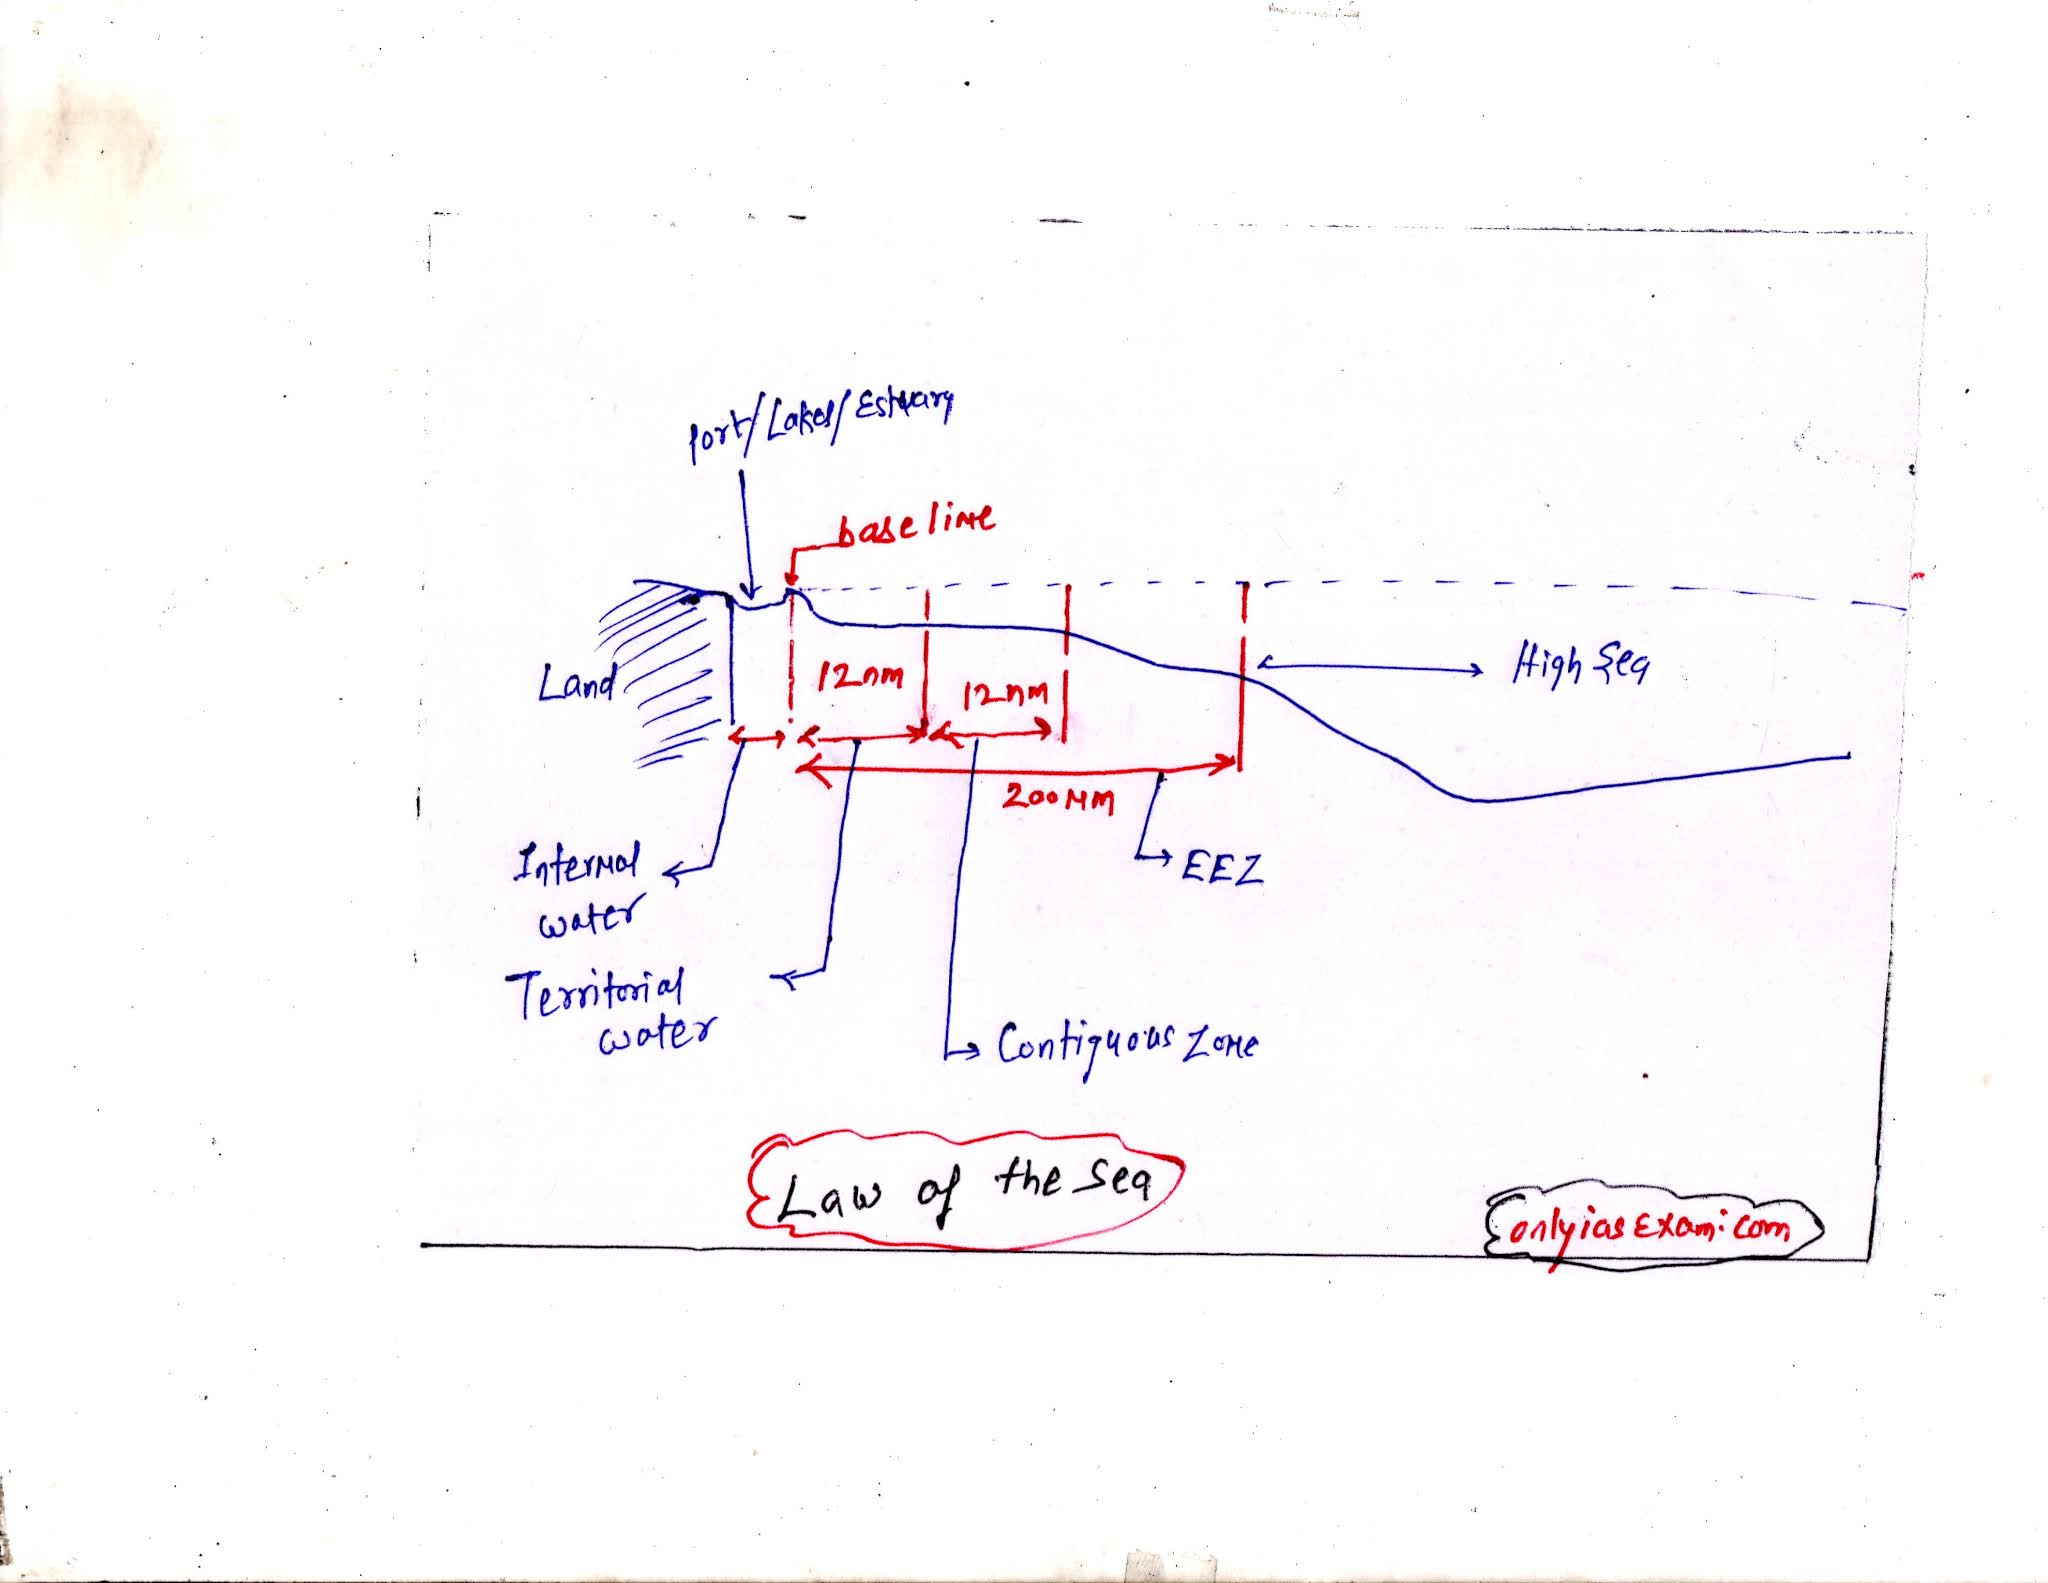 Port/Lakes/Estuary
baseline
High Sea
Land
12nm
12nm
200nm
Internal
water
EEZ
Territorial
water
Contiguous Zone
Law of the Sea
onlyiasExam.com